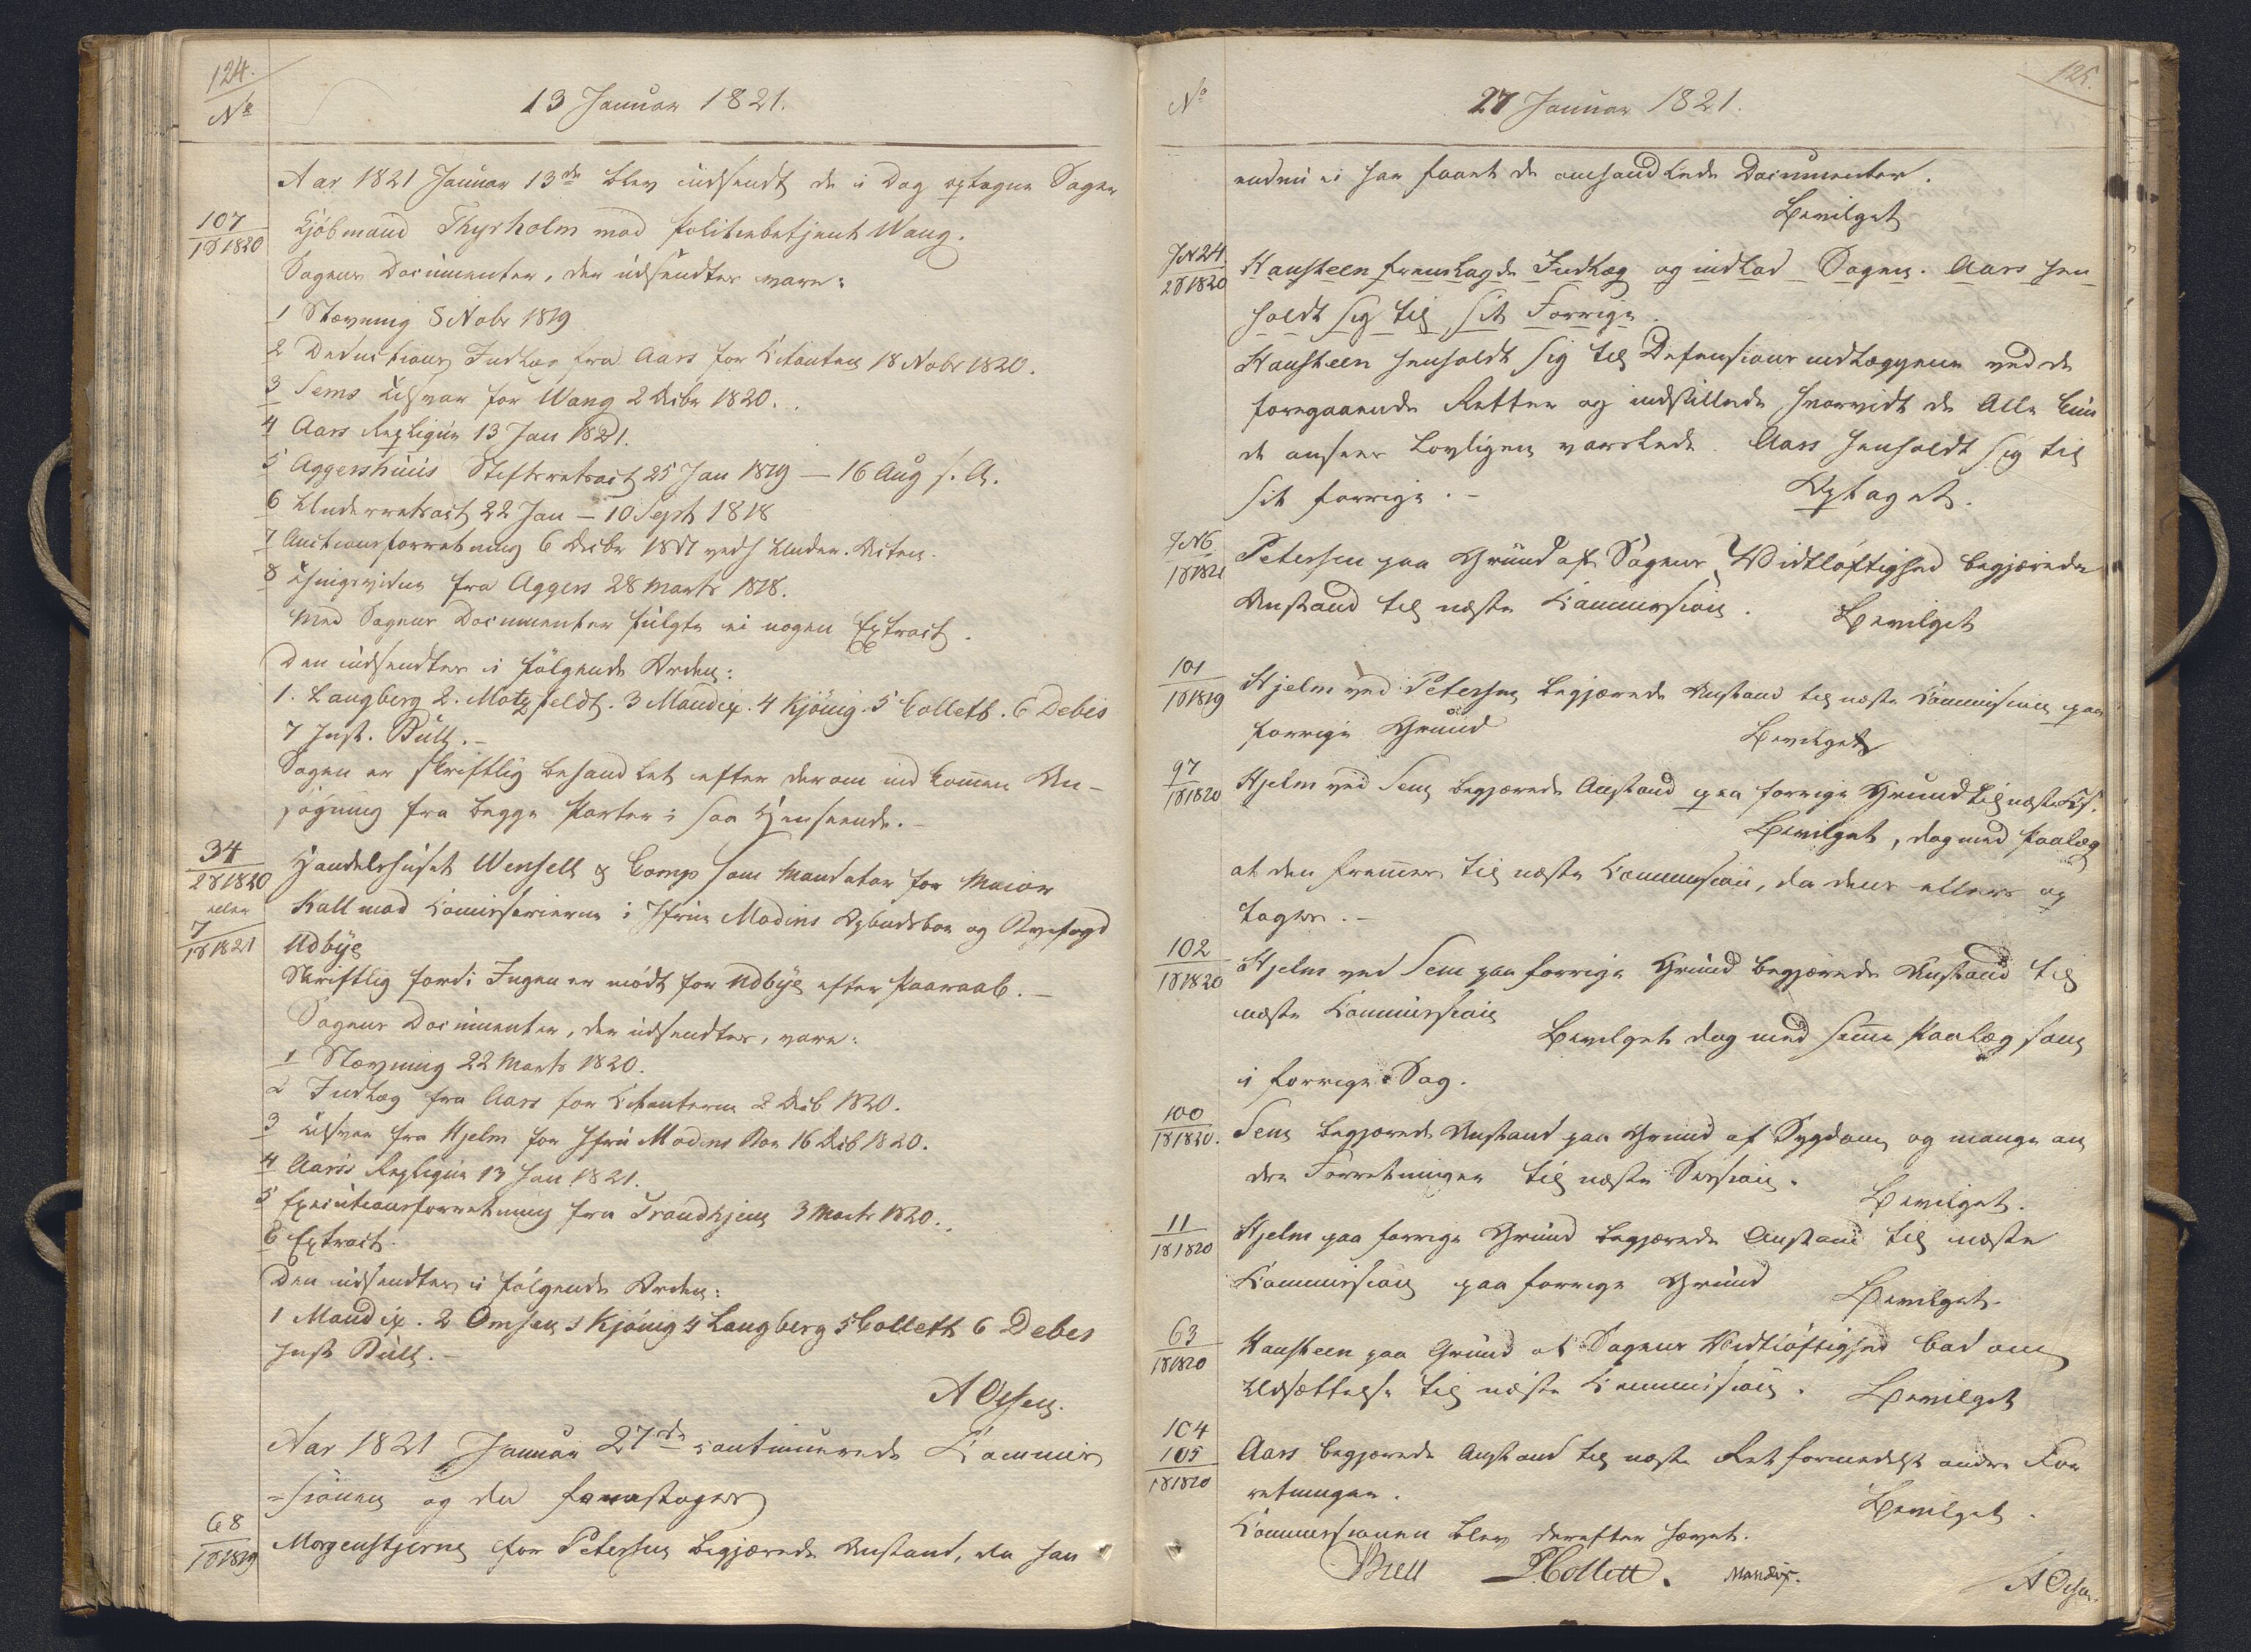 124.
No
13 Januar 1821.
Aar 1821 Januar 13de blev udsendt de i Dag optagne Sager
107
1S 1820
Kjöbmand Thyrholm mod Politiebetjent Wang.
Sagens Documenter, der udsendtes vare:
1 Stævning 8 Nobr 1819
2 Deductions Indlæg fra Aars for Citanten 18 Nobr 1820.
3 Sems Tilsvar for Wang 2 Decbr 1820.
4 Aars Replique 13 Jan 1821.
5 Aggershuus Stiftsretsact 25 Jan 1819 — 16 Aug s. A.
6 Underretsact 22 Jan – 10 Sept 1818
7 Auctionsforretning 6 Decbr 18 vedh Under. Acten.
8 Thingsvidne fra Aggers 28 Marts 1818.
Med Sagens Documenter fulgte ei nogen Extract.
Den udsendtes i følgende Orden:
1. Langberg 2. Motzfeldt. 3 Mandix. 4 Kjönig. 5 Collett. 6 Debes
7 Just. Bull. –
Sagen er skriftlig behandlet efter derom indkommen An-
søgning fra begge Parter i saa Henseende. –
34
2S 1820
eller
7
1S 1821
Handelshuset Wensell & Comp som Mandatar for Maior
Kall mod Comissarierne i Jfru Modins Opbudsboe og Byefogd
Udbye
Skriftlig fordi Ingen er mödt for Udbye efter Paaraab. –
Sagens Documenter, der udsendtes, vare:
1 Stævning 22 Marts 1820.
2 Indlæg fra Aars for Citanterne 2 Decb 1820.
3 Tilsvar fra Hjelm for Jfru Modins Boe 16 Decb 1820.
4 Aars's Replique 13 Jan 1821.
5 Executionsforretning fra Trondhjem 3 Marts 1820.
6 Extract.
Den udsendtes i følgende Orden:
1 Mandix. 2 Omsen 3 Kjönig 4 Langberg 5 Collett 6 Debes
Just Bull. –
A Olsen.
Aar 1821 Januar 27de continuerede Commis
=sionen og da foretoges
68
1S 1819
Morgenstjerne for Petersen begjærede Anstand, da han
No
27 Januar 1821.
125.
endnu ei har faaet de omhandlede Documenter.
Bevilget
J No 24
2S 1820
Hansteen fremlagde Indlæg og indlod Sagen. Aars hen
holdt sig til sit Forrige.
Hansteen henholdt sig til Defensionsindlæggene ved de
foregaaende Retter og indstillede hvorvidt de Alle kun
de ansees lovligen varslede. Aars henholdt sig til
sit forrige. –
Optaget.
J No 6
1S 1821
Petersen paa Grund af Sagens Vidtløftighed begjærede
Anstand til næste Commission.
Bevilget
101
1S 1819
Hjelm ved Petersen begjærede Anstand til næste Commission paa
forrige Grund
Bevilget
97
1S 1820
Hjelm ved Sem begjærede Anstand paa forrige Grund til næste
Bevilget, dog med Paalæg
at den fremmes til næste Commission, da den ellers op
tages. –
102
1S 1820
Hjelm ved Sem paa forrige Grund begjærede Anstand til
næste Commission
Bevilget dog med samme Paalæg som
i forrige Sag.
100
1S 1820.
Sem begjærede Anstand paa Grund af Sygdom og mange an
dre Forretninger til næste Session.
Bevilget.
11
1S 1820
Hjelm paa forrige Grund begjærede Anstand til næste
Commission paa forrige Grund
Bevilget.
63
1S 1820
Hansteen paa Grund af Sagens Vidtløftighed bad om
Udsættelse til næste Commission.
Bevilget
104
105
1S 1820
Aars begjærede Anstand til næste Ret formedelst andre For
retninger.
Bevilget.
Commissionen blev derefter hævet.
Bull P. Collett. Mandix.
A Olsen.